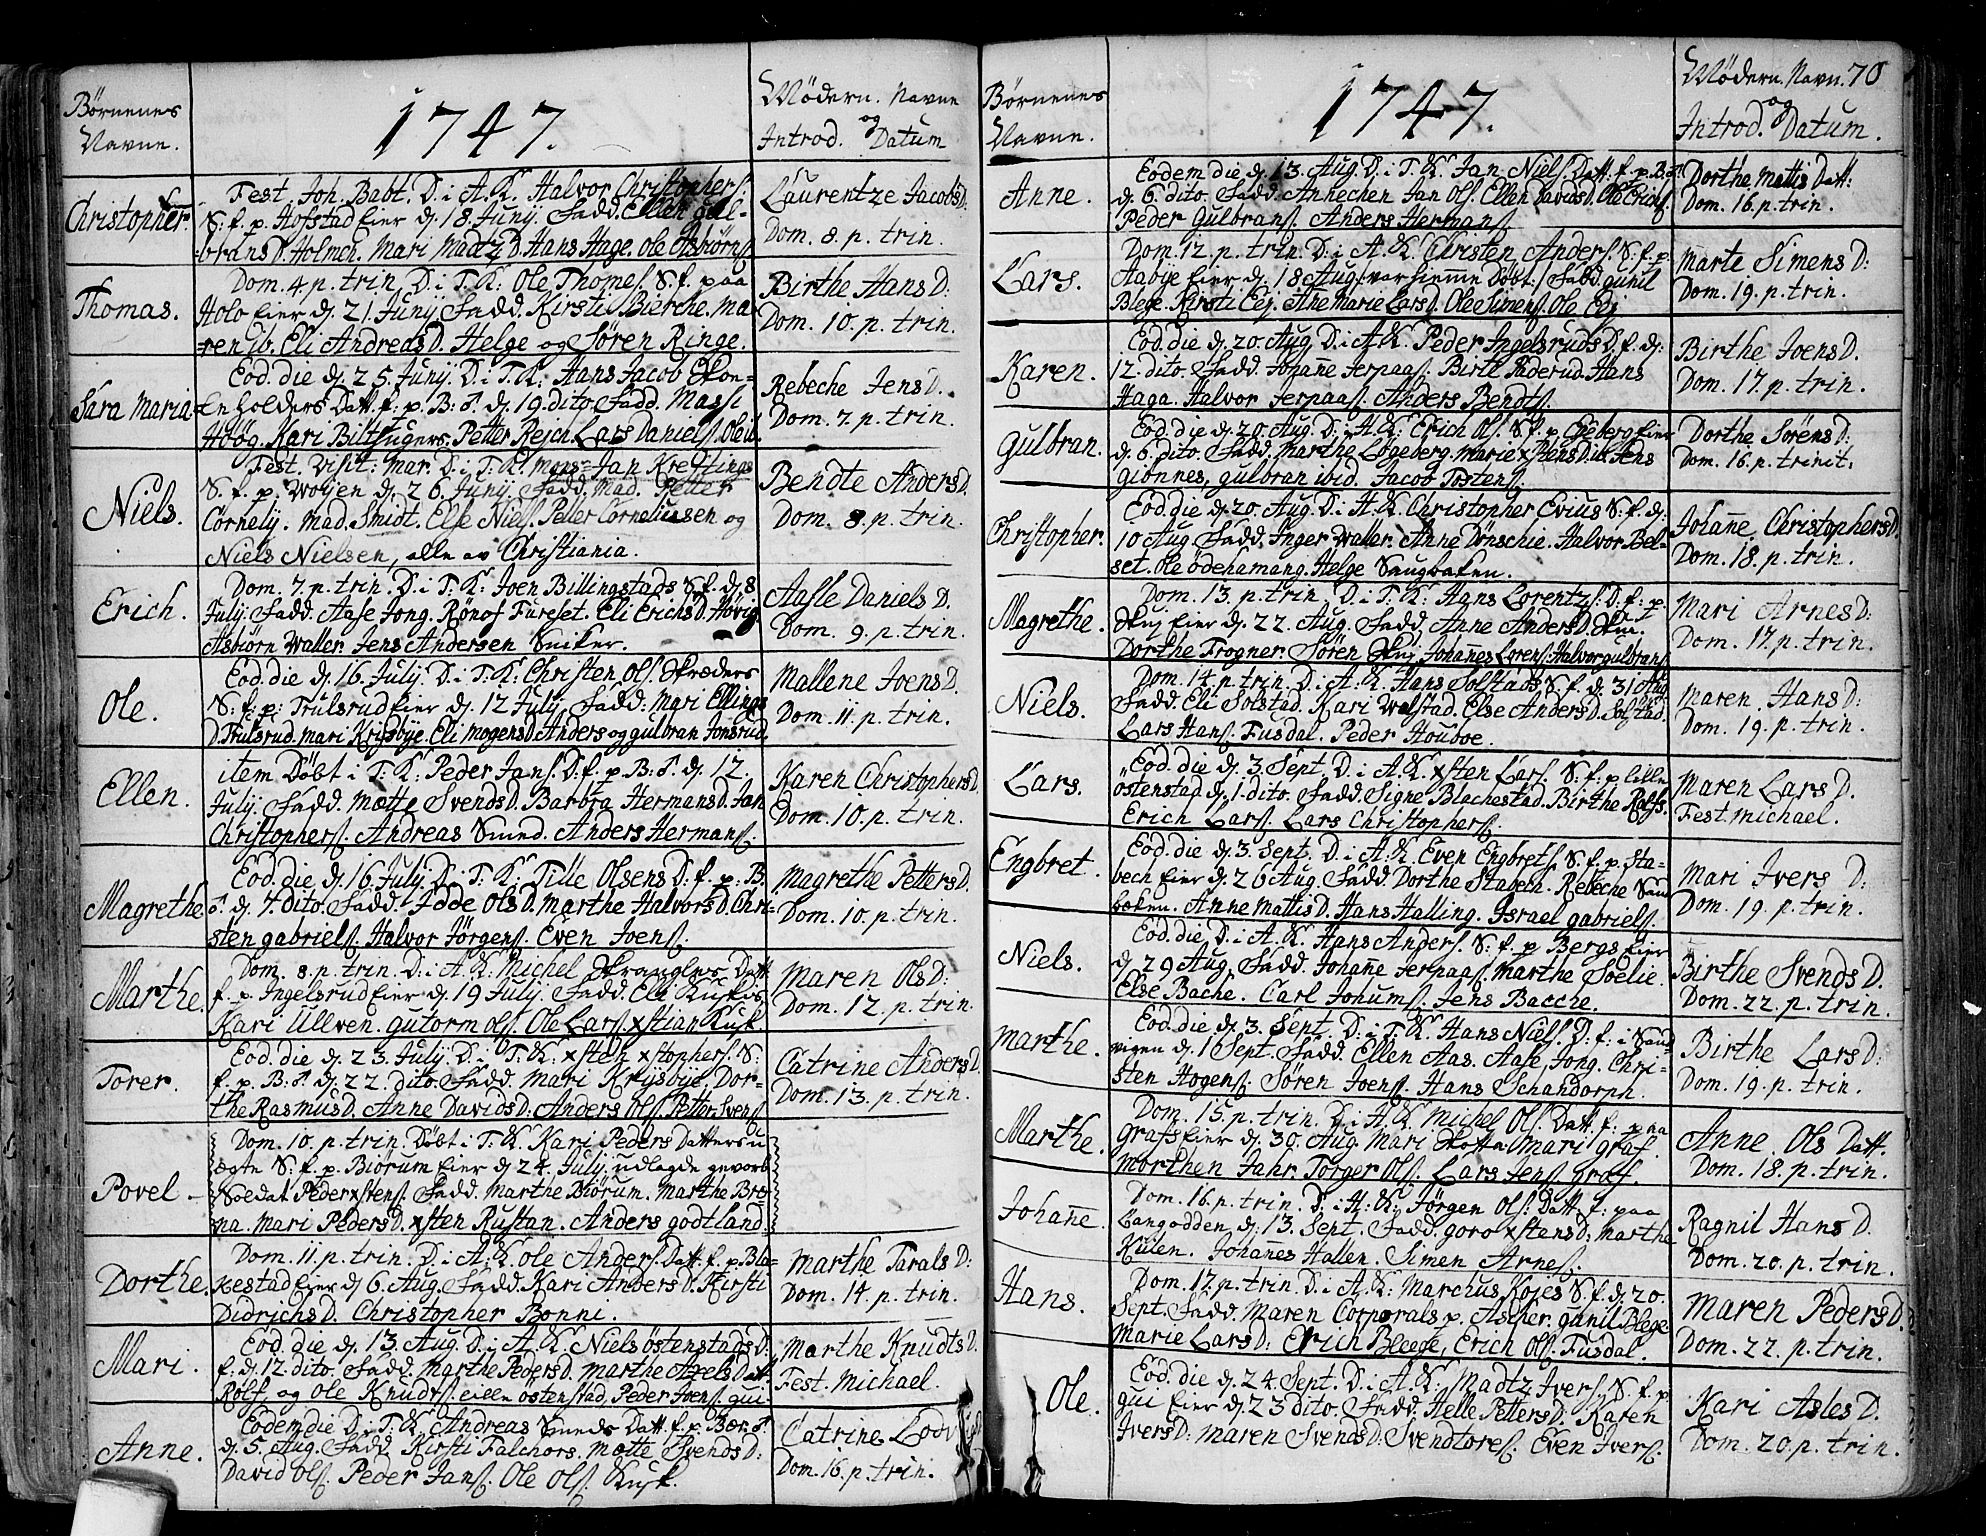 Børnenes
Navne.
1747.
Mödern. Navne
og
Introd. Datum
Christopher.
Fest. Joh. Babt. D. i A. K. Halvor Christophers.
S. f. p. Hofstad Eier dj 18 Junij. Fadd. Ellen Gul-
brans D. Holmen. Mari Madtz D. Hans Hage. Ole Asbiörns
Laurentze Jacobs D.
Dom. 8. p. trin.
Thomas.
Dom. 4. p. trin. D. i T. K: Ole Thomes. S. f. paa
Holo Eier dj 21 Junij Fadd. Kirsti Bierche. Ma-
ren ib. Eli Andreas D. Helge og Søren Ringe.
Birthe Hans D:
Dom. 10. p. trin.
Sara Maria
Eod. die dj 25 Junij. D. i T. K: Hans Jacob Skon-
enholders Datt. f. p. B: S. dj 19. dito. Fadd. Massi
Höög. Kari Biltsugers. Petter Rejch. Lars Daniels. Ole
Rebeche Jens D.
Dom. 7. p. trin.
Niels.
Fest. Visit: Mar. D. i T. K. Mons= Jan Kreftings
S. f. p. Wöyen dj 26 Junij. Fadd. Mad. Petter
Cornelij. Mad. Smidt. Else Niels. Petter Corneliussen og
Niels Nielsen, alle av Christiania.
Bendte Anders D.
Dom. 8. p. trin.
Erich.
Dom. 7. p. trin. D. i T. K: Joen Billingstads S. f. dj 8
Julij. Fadd. Aase Jong. Rönof Furuset. Eli Erichs D. Hövig
Asbiörn Waller. Jens Andersen Snicker.
Aasle Daniels D.
Dom. 9. p. trin.
Ole.
Eod. die dj 16 Julij. D. i T. K: Christen Ols. Skræders
S: f: p: Trulsrud Eier dj 12 Julij. Fadd: Mari Ellings
D. Trulsrud. Mari Krijsbye. Eli Mogens D. Anders og Gulbran Jonsrud
Mallene Joens D.
Dom. 11. p. trin.
Ellen.
item Döbt i T: K: Peder Jans. D. f. p. B: S. dj 12
Julij. Fadd. Mætte Svends D. Barbra Hermans D. Jan
Christophers. Andreas Smed. Anders Hermans.
Karen Christophers D.
Dom. 10. p. trin.
Magrethe
Eod. die dj 16. Julij. D. i T. K: Tille Olsens D. f. p: B.
S. dj 7. dito. Fadd. Idde Ols D. Marthe Halvors D. Chri-
sten Gabriels. Halvor Jörgens. Even Joens.
Magrethe Petters D.
Dom. 10. p. trin.
Marthe.
Dom. 8. p. trin. D. i A. K. Michel Skrangles Datt.
f. p. Ingelsrud Eier dj 19 Julij. Fadd. Eli Kuskes
Kari Ullven. Gutorm Ols. Ole Lars. xstian Kusk
Maren Ols D:
Dom. 12. p. trin.
Torer.
Eod. die dj 23. Julij. D. i T. K: xsten xstophers. S:
f. p. B: S. dj 22. dito. Fadd. Mari Krijsbye. Dor-
the Rasmus D. Anne Davids D: Anders Ols. Petter Svens
Catrine Anders D.
Dom. 13. p. trin.
Povel -
Dom. 10. p. trin. Döbt i T. K. Kari Peders Datters u
ægte S: f. p. Biörum Eier dj 24. Julij. udlagde gevorb
Soldat Peder xstens. Fadd. Marthe Biörum. Marthe Bre-
ma. Mari Peders D. xsten Rustan. Anders Godtland.
Dorthe.
Dom. 11. p. trin. D. i A. K. Ole Anders. Datt. f. p. Bla-
kestad Eier dj 6. Aug. Fadd. Kari Anders D. Kirsti
Didrichs D. Christopher Bonni.
Marthe Tarals D:
Dom. 14. p. trin.
Mari.
Eod. die dj. 13. Aug. D. i A. K. Niels Östenstads D:
f. dj. 12. dito. Fadd. Marthe Peders D. Marthe Axels Datt.
Rolf. og Ole Knuds. eien Östenstad. Peder Joens. Gui
Marthe Knudts D.
Fest. Michael.
Anne.
Eodem die D. i T. K. Andreas Smeds Datt. f. p. Bær: S.
dj 5. Aug. Fadd. Kirsti Falchors. Mætte Svends D:
David Ols. Peder Jans. Ole Ols. Kusk.
Catrine Lodv
Dom. 16. p. trin.
Børnenes
Navne.
1747.
Mödern. Navn. 70
og
Introd. Datum.
Anne.
Eodem die dj. 13. Aug. D. i T. K. Jan Niels. Datt. f. p. B. S.
dj. 6. dito. Fadd. Annechen Jan Ols. Ellen Davids D. Ole Erichs.
Peder Gulbrans. Anders Hermans.
Dorthe Mattis Datt:
Dom. 16. p. trin.
Lars.
Dom. 12. p. trin. D: i A. K. Christen Anders. S. f. p
Aabye Eier dj. 18 Aug. var hiemme Döbt. Fadd. Gunil
Blege. Kirsti Eej. Ane Marie Lars D. Ole Simens. Ole Eej
Marte Simens D:
Dom. 19. p. trin.
Karen.
Eod. die dj. 20. Aug. D. i A. K. Peder Ingelsruds D. f. dj:
12. dito. Fadd. Johane Jerpaas. Birte Paderud. Hans
Haga. Halvor Jerpaas. Anders Bendts.
Birthe Joens D.
Dom. 17. p. trin.
Gulbran.
Eod. die dj. 20. Aug. D. i A. K: Erich Ols. S. f. p. Egeberg Eier
dj. 6. dito. Fadd. Marthe Lögeberg. Marie xstens D. ib. Jens
Gionnes, Gulbran ibid. Jacob Tostens.
Dorthe Sörens D:
Dom. 16. p. trinit.
Christopher.
Eod. die dj. 20. Aug. D. i A. K. Christopher Evius S. f. dj.
10 Aug. Fadd. Inger Waller. Anne Dönschie. Halvor Bel-
set. Ole Ödehamang. Helge Saugbaken.
Johane Christophers D
Dom. 18. p. trin.
Magrethe.
Dom. 13. p. trin. D. i T. K: Hans Lorentzs. D. f. p.
Skuj Eier dj. 22. Aug. Fadd. Anne Anders D. Skui.
Dorthe Frogner. Sören Skuj Johanes Lorens. Halvor Gulbrans
Mari Arnes D:
Dom. 17. p. trin.
Niels.
Dom. 14. p. trin. D. i A. K. Hans Solstads S. f. dj. 31 Aug.
Fadd. Eli Solstad. Kari Wolstad. Else Anders D. Solstad.
Lars Hans. Fusdal. Peder Houboe.
Maren. Hans D:
Dom. 19. p. trin.
Lars.
Eod. die dj. 3. Sept. D. i A. K. xsten Lars. S: f. p Lille
Östenstad dj. 1. dito. Fadd. Signe Blachestad. Birthe Rolfs.
Erich Lars. Lars Christophers.
Maren Lars D.
Fest. Michael.
Engbret.
Eod. die dj. 3. Sept. D. i A. K. Even Engbreths. S. f. p. Sta-
bech Eier dj. 26 Aug. Fadd. Dorthe Stabech. Rebeche Sand
baken. Anne Mattis D. Hans Halling. Israel Gabriels.
Mari Ivers D:
Dom. 19. p. trin.
Niels.
Eod. die. D. i A. K. Hans Anders. S: f. p Bergs Eier
dj 29 Aug. Fadd. Johane Jerpaas. Marthe Solie.
Else Bache. Carl Johums. Jens Bacche.
Birthe Svends D.
Dom. 22. p. trin.
Marthe.
Eod. die dj. 3. Sept. D. i T. K Hans Niels. D: f: i Sand
vigen dj. 1 Sept. Fadd. Ellen Aas. Aase Jong. Chri-
sten Hogens. Sören Joens. Hans Schandorph.
Birthe Lars D:
Dom. 19. p. trin.
Marthe.
Dom. 15. p. trin. D. i A. K. Michel Ols. Datt. f: paa
Grafs Eier dj. 30. Aug. Mari Skotta. Mari Graf.
Morthen Jahr. Torger Ols. Lars Jens. Graf.
Anne. Ols Datt.
Dom. 18. p. trin.
Johane.
Dom. 16. p. trin. D. i A: K: Jörgen Ols. Datt. f: paa
Langodden. dj: 13. Sept. Fadd. Goro xstens D: Marthe
Kulen. Johanes Hallen. Simen Arnes.
Ragnil Hans D.
Dom. 20. p. trin.
Hans.
Dom. 17. p. trin. D. i A. K: Marchus Kojes S. f. dj. 20.
Sept. Fadd. Maren Corporals p. Ascher. Gunil Blege
Marie Lars D: Erich Bleege, Erich Ols. Fusdal.
Maren Peders D.
Dom. 22. p. trin.
Ole.
Eod. die dj. 24. Sept. D. i A. K: Madtz Ivers. S. f. p
Gui Eier dj. 23 dito. Fadd. Helle Petters D. Karen
Ivers D: Maren Svends D: Svend Tores. Even Ivers.
Kari Asles D.
Dom. 20. p. trin.